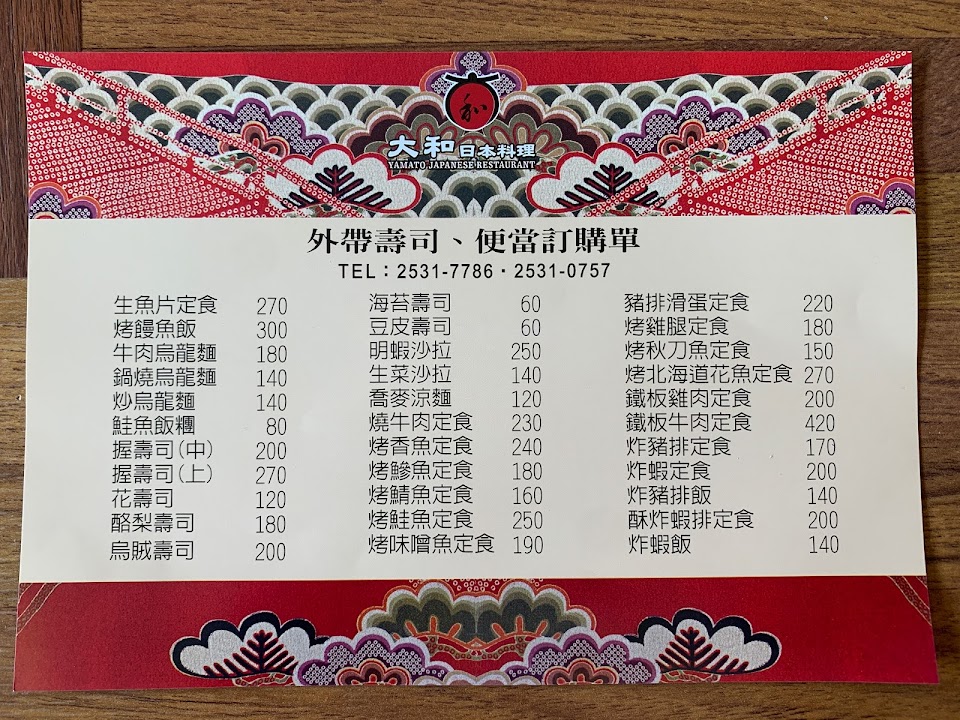 和
大和日本料理
YAMATO JAPANESE RESTAURANT
外帶壽司、便當訂購單
TEL：2531-7786・2531-0757
生魚片定食 270
烤饅魚飯 300
牛肉烏龍麵 180
鍋燒烏龍麵 140
炒烏龍麵 140
鮭魚飯糰 80
握壽司(中) 200
握壽司(上) 270
花壽司 120
酪梨壽司 180
烏賊壽司 200
海苔壽司 60
豆皮壽司 60
明蝦沙拉 250
生菜沙拉 140
喬麥涼麵 120
燒牛肉定食 230
烤香魚定食 240
烤鰺魚定食 180
烤鯖魚定食 160
烤鮭魚定食 250
烤味噌魚定食 190
豬排滑蛋定食 220
烤雞腿定食 180
烤秋刀魚定食 150
烤北海道花魚定食 270
鐵板雞肉定食 200
鐵板牛肉定食 420
炸豬排定食 170
炸蝦定食 200
炸豬排飯 140
酥炸蝦排定食 200
炸蝦飯 140